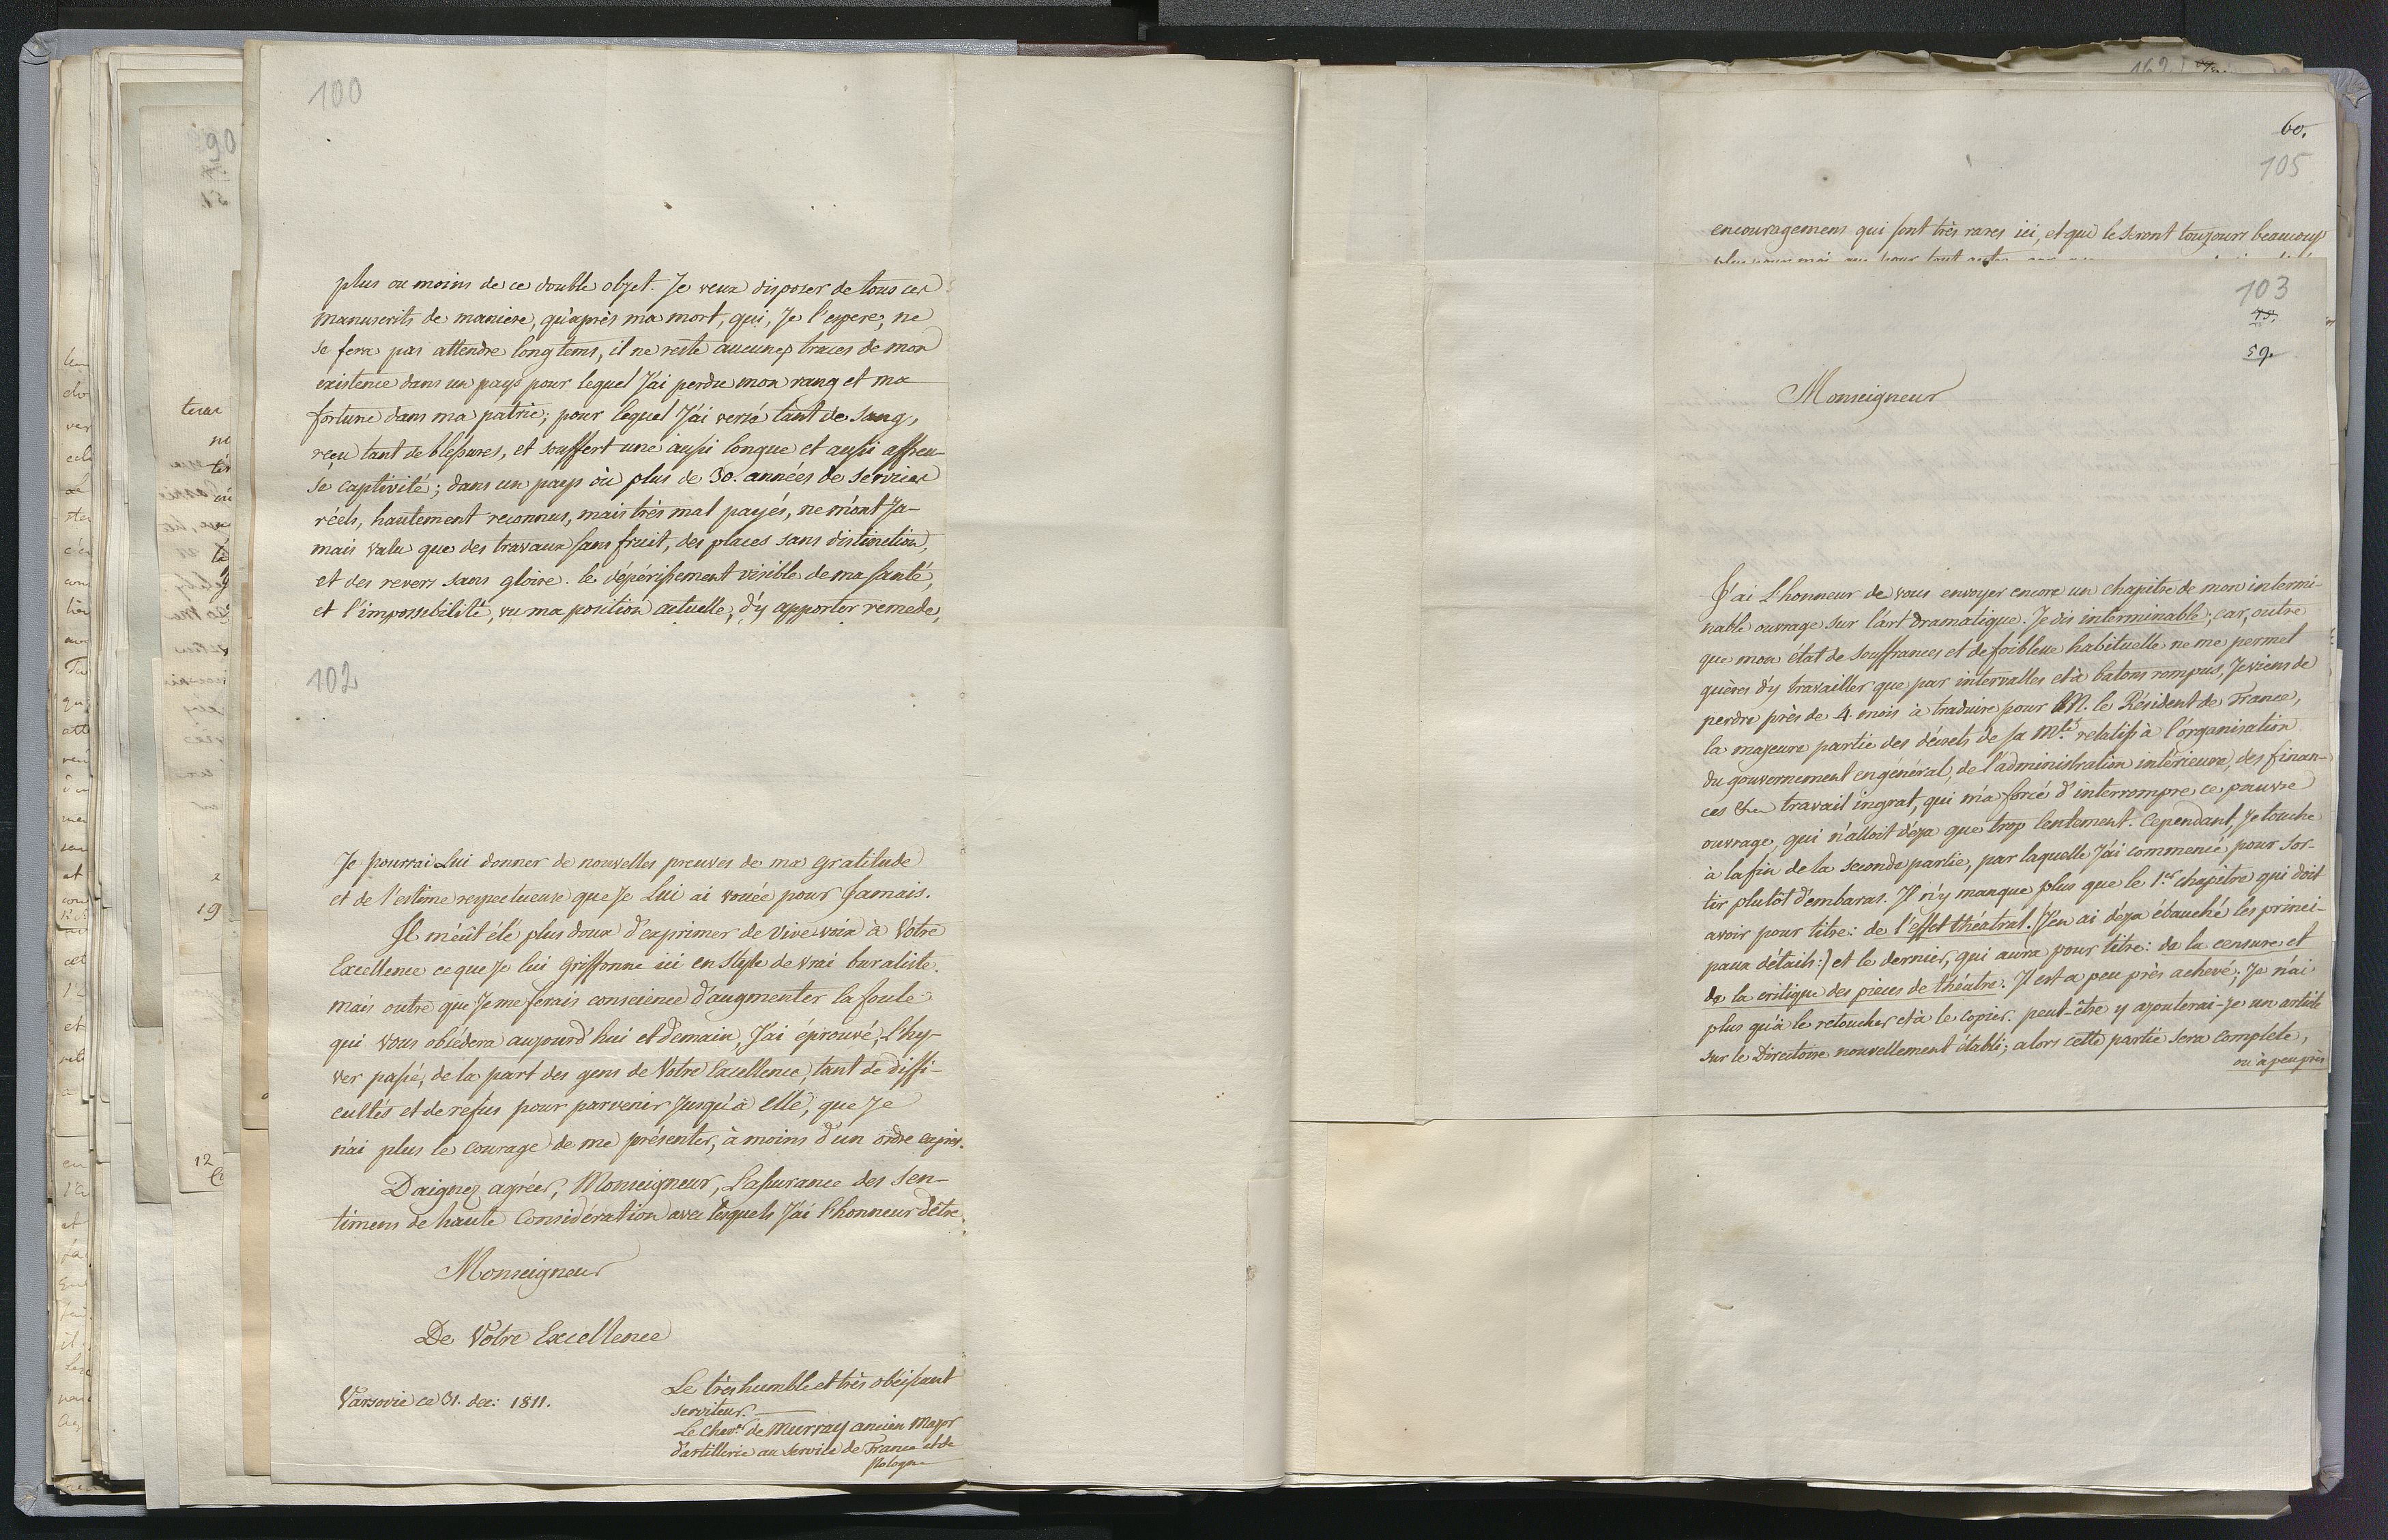 100
plus ou moins de ce double objet. Je veux disposer de tous ces
manuscrits de maniere, qu'après ma mort, qui, Je l'espere, ne
se fera pas attendre long tems, il ne reste aucunes traces de mon
existence dans un pays pour lequel J'ai perdu mon rang et ma
fortune dans ma patrie; pour lequel J'ai versé tant de sang,
reçu tant de blessures, et souffert une aussi longue et aussi affreu-
se captivité; dans un pays où plus de 30. années de services
réels, hautement reconnus, mais très mal payés, ne m'ont Ja-
mais valu que des travaux sans fruit, des places sans distinction,
et des revers sans gloire. le dépérissement visible de ma santé,
et l'impossibilité, vu ma position actuelle, d'y apporter remede,
102
Je pourrai Lui donner de nouvelles preuves de ma gratitude
et de l'estime respectueuse que Je Lui ai vouée pour Jamais.
Il m'eût été plus doux d'exprimer de Vive voix à Vôtre
Excellence ce que Je lui Griffonne ici en Style de vrai buraliste.
mais outre que Je me ferais conscience d'augmenter la foule
qui vous obsédera aujourd'hui et demain, J'ai éprouvé, L'hy-
ver passé, de la part des gens de Vôtre Excellence, tant de diffi-
cultés et de refus pour parvenir Jusqu'à Elle, que Je
n'ai plus le courage de me présenter, à moins d'un ordre exprès.
Daignez agréer, Monseigneur, L'assurance des Sen-
timens de haute Considération avec lesquels J'ai l'honneur d'être
Monseigneur
De Votre Excellence
Varsovie ce 31. dec: 1811.
Le très humble et très obéissant
serviteur.
Le Chev.er de Murray ancien Major
d'artillerie au Service de France et de
Pologne
60.
105
encouragemens qui sont très rares ici, et qui le seront toujours beaucoup
103
59.
Monseigneur
J'ai L'honneur de vous envoyer encore un chapitre de mon intermi-
nable ouvrage sur l'art Dramatique. Je dis interminable; car, outre
que mon état de souffrances et de foiblesse habituelle ne me permet
guères d'y travailler que par intervalles et à batons rompus, Je viens de
perdre près de 4. mois à traduire pour M. le Résident de France,
la majeure partie des décrets de sa M.té relatifs à l'organisation
du gouvernement en général, de l'administration intérieure, des finan-
ces travail ingrat, qui m'a forcé d'interrompre ce pauvre
ouvrage, qui n'alloit déja que trop lentement. Cependant, Je touche
à la fin de la seconde partie, par laquelle J'ai commencé pour sor-
tir plutôt d'embaras. Il n'y manque plus que le 1.er chapitre qui doit
avoir pour titre: de l'effet théatral. (J'en ai déja ébauché les princi-
paux détails:) et le dernier, qui aura pour titre: de la censure et
de la critique des pieces de théatre. Il est a peu près achevé; Je n'ai
plus qu'à le retoucher et à le copier. peut-être y ajouterai-Je un article
sur le Directoire nouvellement établi; alors cette partie sera complete,
ou à peu près